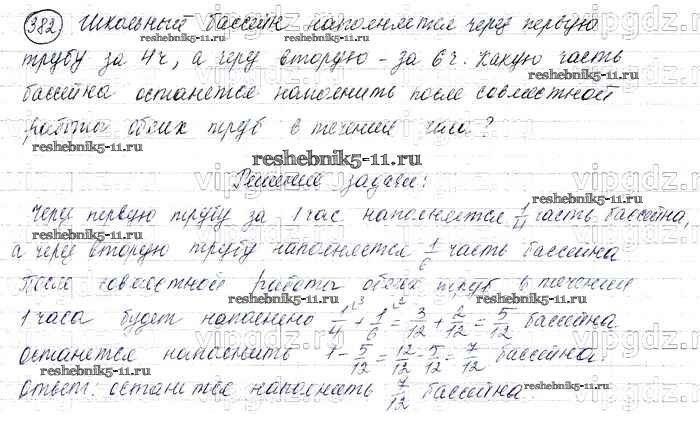 382 Школьный бассейн наполняется через первую
reshebnik5-11.ru reshebnik5-11.ru
трубу за 4ч, а через вторую - за 6ч. Какую часть
бассейна останется наполнить после совместной
reshebnik5-11.ru
работы обоих труб в течении часа?
reshebnik5-11.ru
Решение задачи:
Через первую трубу за 1 час наполняется 1/4 часть бассейна,
а через вторую трубу наполняется 1/6 часть бассейна
После совместной работы обоих труб в течении
reshebnik5-11.ru reshebnik5-11.ru
1 часа будет наполнено 1/4 + 1/6 = 3/12 + 2/12 = 5/12 бассейна
останется наполнить 1 - 5/12 = 12/12 - 5/12 = 7/12 бассейна.
reshebnik5-11.ru reshebnik5-11.ru
ответ: останется наполнить 7/12 бассейна.